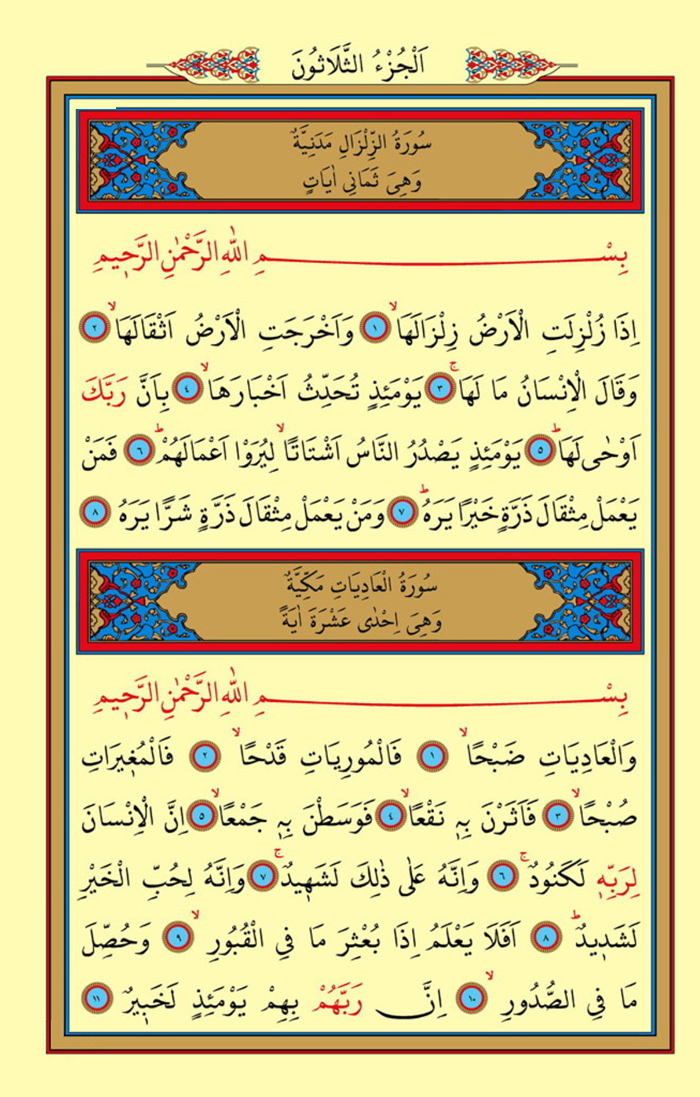 اَلْجُزْءُ الثَّلَاثُونَ
سُورَةُ الزِّلْزَالِ مَدَنِيَّةٌ
وَهِىَ ثَمَانِى اٰيَاتٍ
بِسْمِ اللّٰهِ الرَّحْمٰنِ الرَّحٖيمِ
اِذَا زُلْزِلَتِ الْاَرْضُ زِلْزَالَهَاۙ ١ وَاَخْرَجَتِ الْاَرْضُ اَثْقَالَهَاۙ ٢
وَقَالَ الْاِنْسَانُ مَا لَهَاۚ ٣ يَوْمَئِذٍ تُحَدِّثُ اَخْبَارَهَاۙ ٤ بِاَنَّ رَبَّكَ
اَوْحٰى لَهَاۜ ٥ يَوْمَئِذٍ يَصْدُرُ النَّاسُ اَشْتَاتًاۙ لِيُرَوْا اَعْمَالَهُمْۜ ٦ فَمَنْ
يَعْمَلْ مِثْقَالَ ذَرَّةٍ خَيْرًا يَرَهُۜ ٧ وَمَنْ يَعْمَلْ مِثْقَالَ ذَرَّةٍ شَرًّا يَرَهُ ٨
سُورَةُ الْعَادِيَاتِ مَكِّيَّةٌ
وَهِىَ اِحْدٰى عَشْرَةَ اٰيَةً
بِسْمِ اللّٰهِ الرَّحْمٰنِ الرَّحٖيمِ
وَالْعَادِيَاتِ ضَبْحًاۙ ١ فَالْمُورِيَاتِ قَدْحًاۙ ٢ فَالْمُغٖيرَاتِ
صُبْحًاۙ ٣ فَاَثَرْنَ بِهٖ نَقْعًاۙ ٤ فَوَسَطْنَ بِهٖ جَمْعًاۙ ٥ اِنَّ الْاِنْسَانَ
لِرَبِّهٖ لَكَنُودٌۚ ٦ وَاِنَّهُ عَلٰى ذٰلِكَ لَشَهٖيدٌۚ ٧ وَاِنَّهُ لِحُبِّ الْخَيْرِ
لَشَدٖيدٌۜ ٨ اَفَلَا يَعْلَمُ اِذَا بُعْثِرَ مَا فِى الْقُبُورِۙ ٩ وَحُصِّلَ
مَا فِى الصُّدُورِۙ ١٠ اِنَّ رَبَّهُمْ بِهِمْ يَوْمَئِذٍ لَخَبٖيرٌ ١١